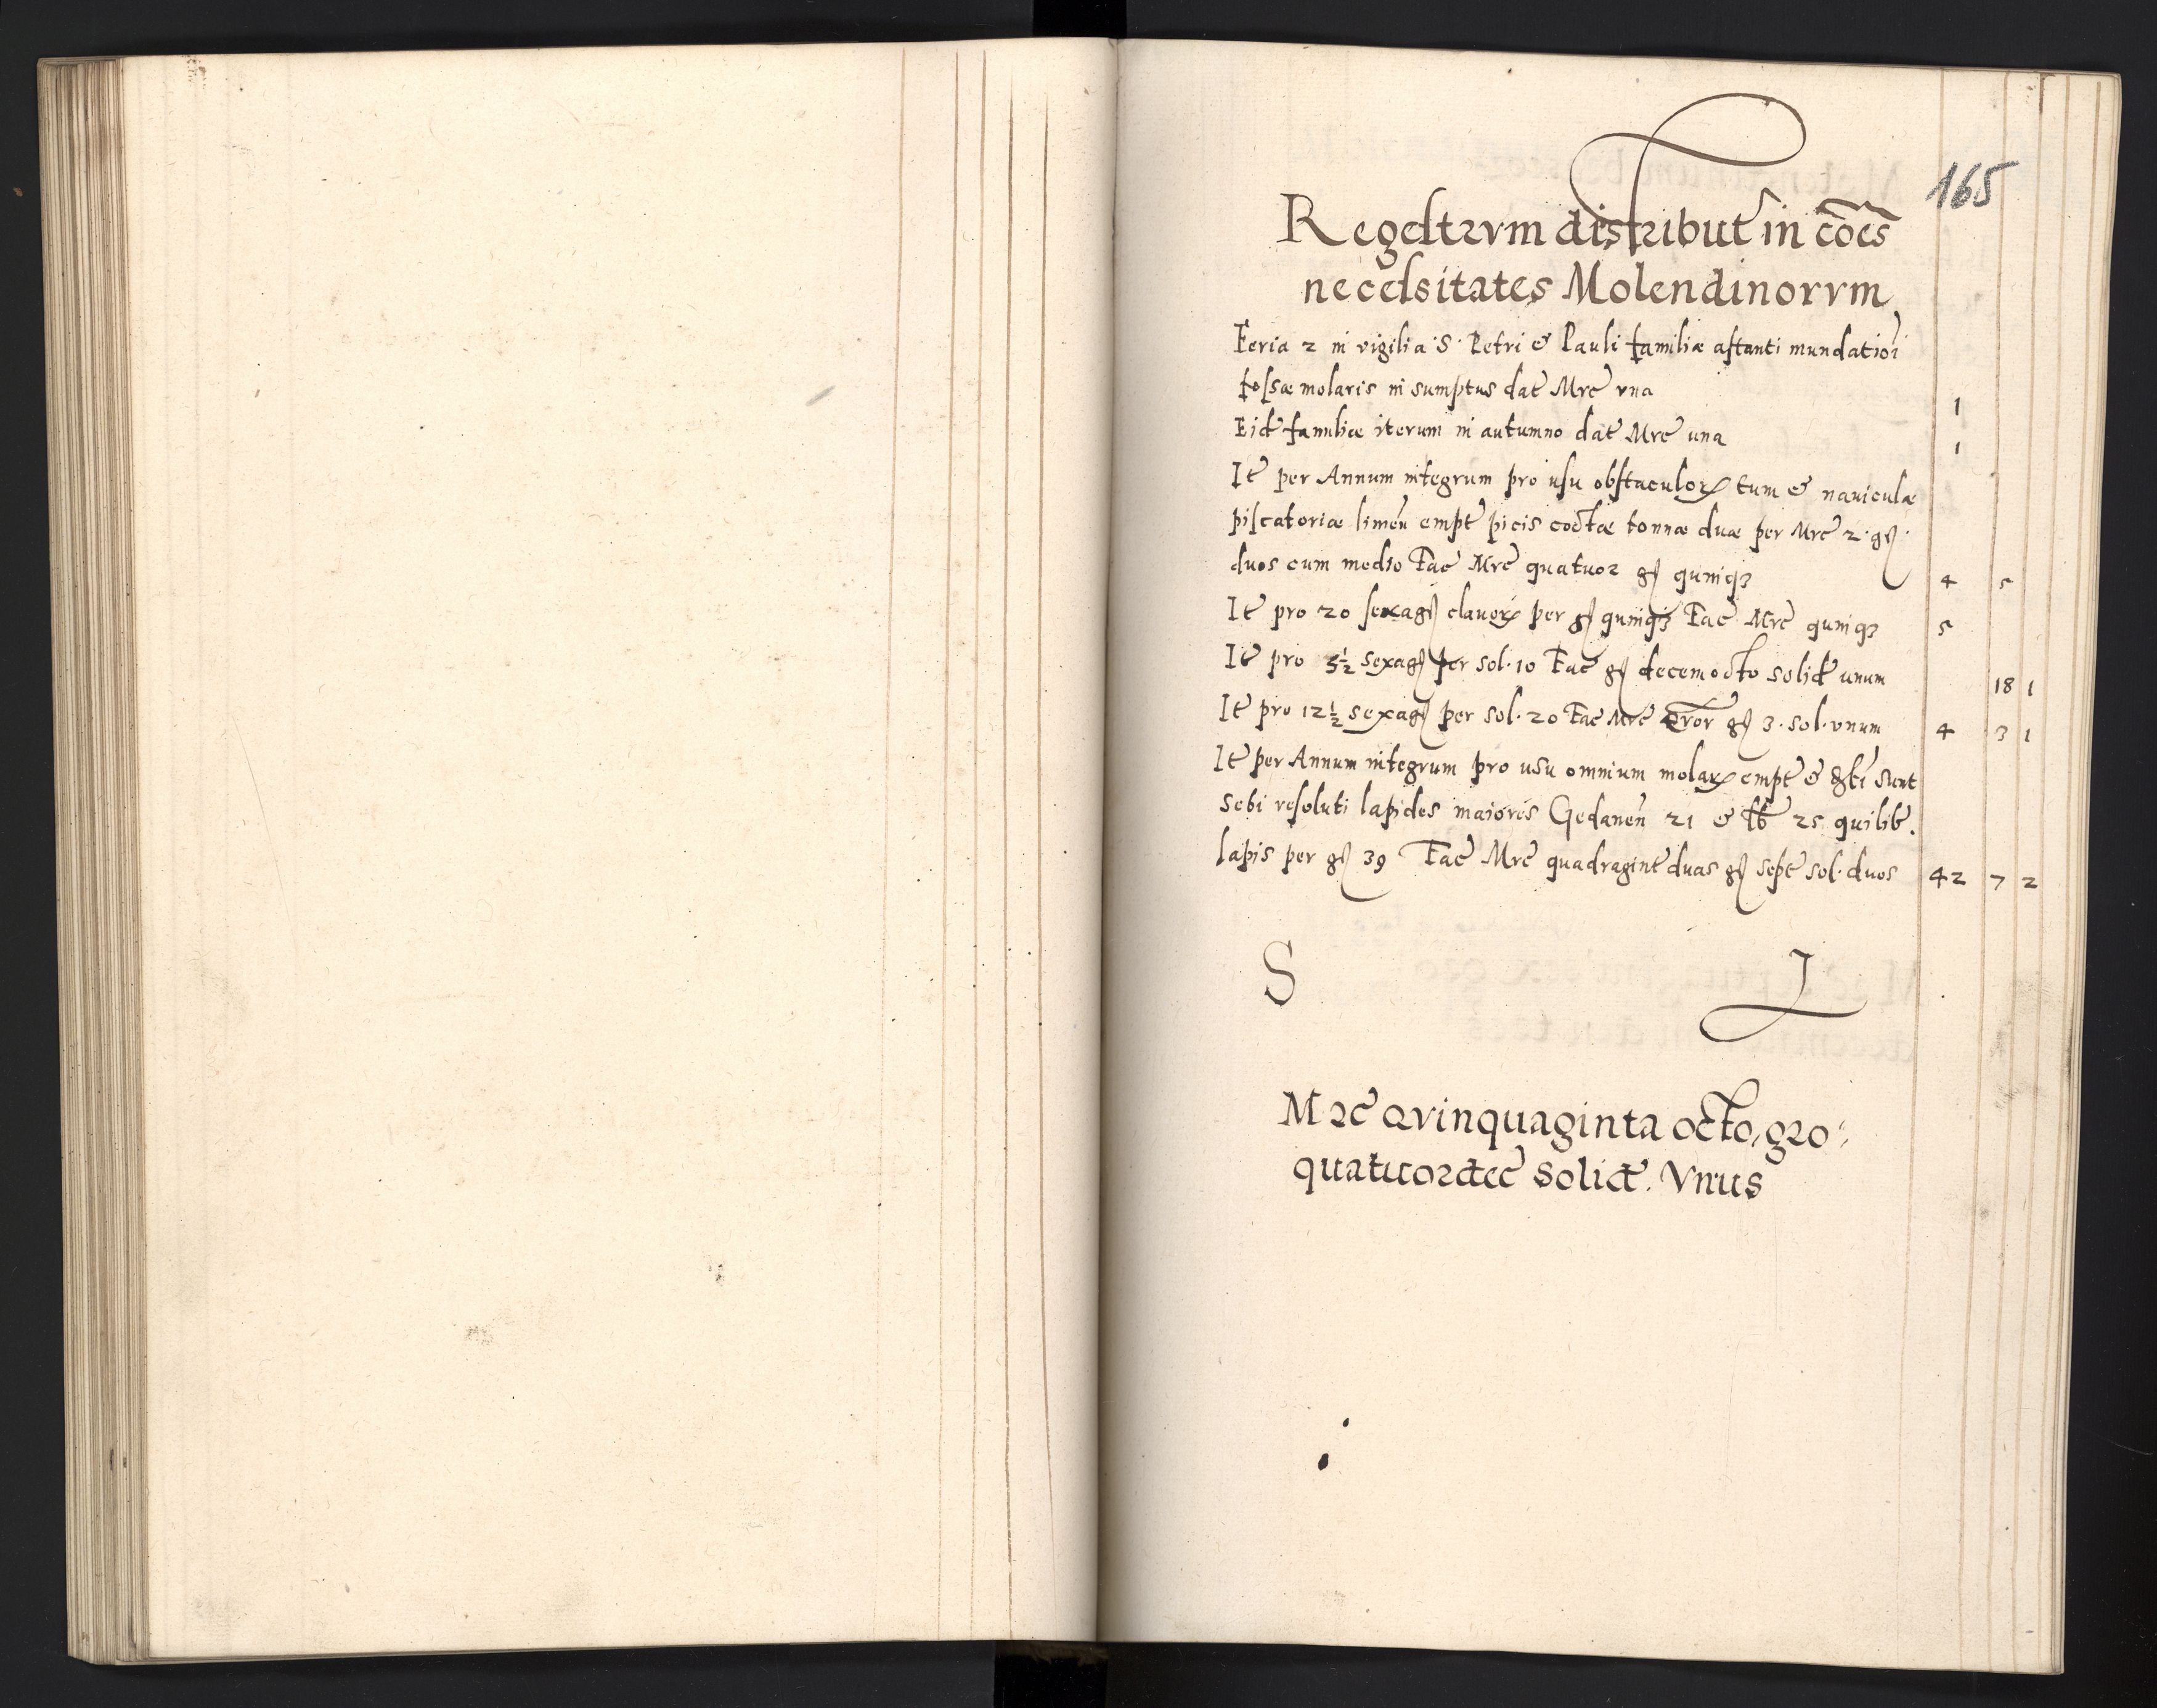 165
Regestrvm distribut in cões
necessitates Molendinorvm
Feria 2 in vigilia S. Petri & Pauli familiæ astanti mundatiõi
fossæ molaris in sumptus dat Mrc vna 1
Eid familiæ iterum in autumno dat Mrc una 1
It per Annum integrum pro usu obstaculorꝝ tum & nauiculæ
piscatoriæ limen empt picis coctæ tonnæ duæ per Mrc 2. gꝭ.
duos cum medio Fac Mrc quatuor gꝭ quinqȝ 4 5
It pro 20 sexagꝭ clauorꝝ per gꝭ quinqȝ Fac Mrc quinqȝ 5
It pro 5½ sexagꝭ per sol. 10 Fac gꝭ decemocto solid unum 18 1
It pro 12½ sexagꝭ per sol. 20 Fac Mrc qror gꝭ 3. sol. vnum 4 3 1
It per Annum integrum pro usu omnium molarꝝ empt & sunt
sebi resoluti lapides maiores Gedanen 21 & lb 25 quilibt.
lapis per gꝭ 39 Fac Mrc quadragint duas gꝭ sept sol. duos 42 7 2
S
Mrc Qvinquaginta octo, gro:
quatuordec solid. Vnus